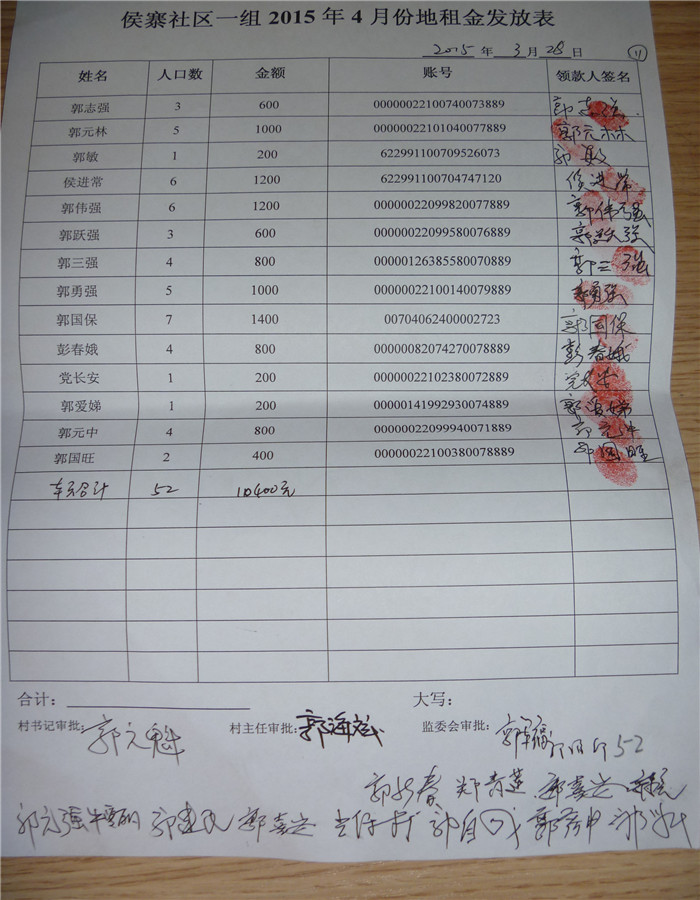 侯寨社区一组 2015 年 4 月份地租金发放表
2015 年 3 月 28 日 11
姓名 人口数 金额 账号 领款人签名
郭志强 3 600 00000022100740073889 郭志强
郭元林 5 1000 00000022101040077889 郭元林
郭敏 1 200 622991100709526073 郭敏
侯进常 6 1200 622991100704747120 侯进常
郭伟强 6 1200 00000022099820077889 郭伟强
郭跃强 3 600 00000022099580076889 郭跃强
郭三强 4 800 00000126385580070889 郭三强
郭勇强 5 1000 00000022100140079889 郭勇强
郭国保 7 1400 00704062400002723 郭国保
彭春娥 4 800 00000082074270078889 彭春娥
党长安 1 200 00000022102380072889 党长安
郭爱娣 1 200 00000141992930074889 郭爱娣
郭元中 4 800 00000022099940071889 郭元中
郭国旺 2 400 00000022100380078889 郭国旺
本页合计 52 10400元
合计: 大写:
村书记审批: 郭元魁 村主任审批: 郭海斌 监委会审批:
52